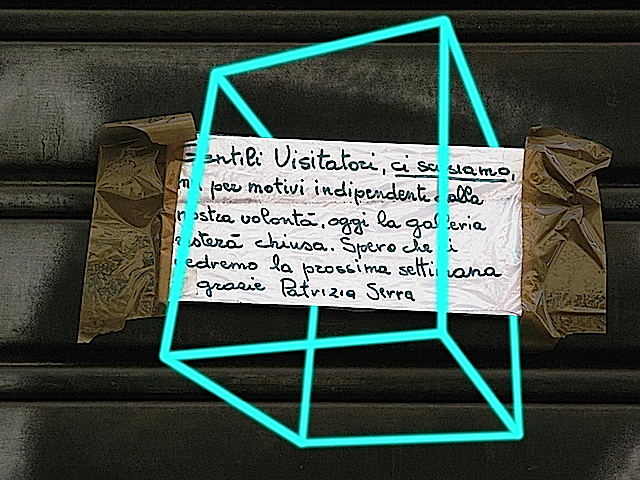 Gentili Visitatori, ci scusiamo,
ma per motivi indipendenti dalla
nostra volontà, oggi la galleria
resterà chiusa. Spero che ci
vedremo la prossima settimana
grazie Patrizia Serra